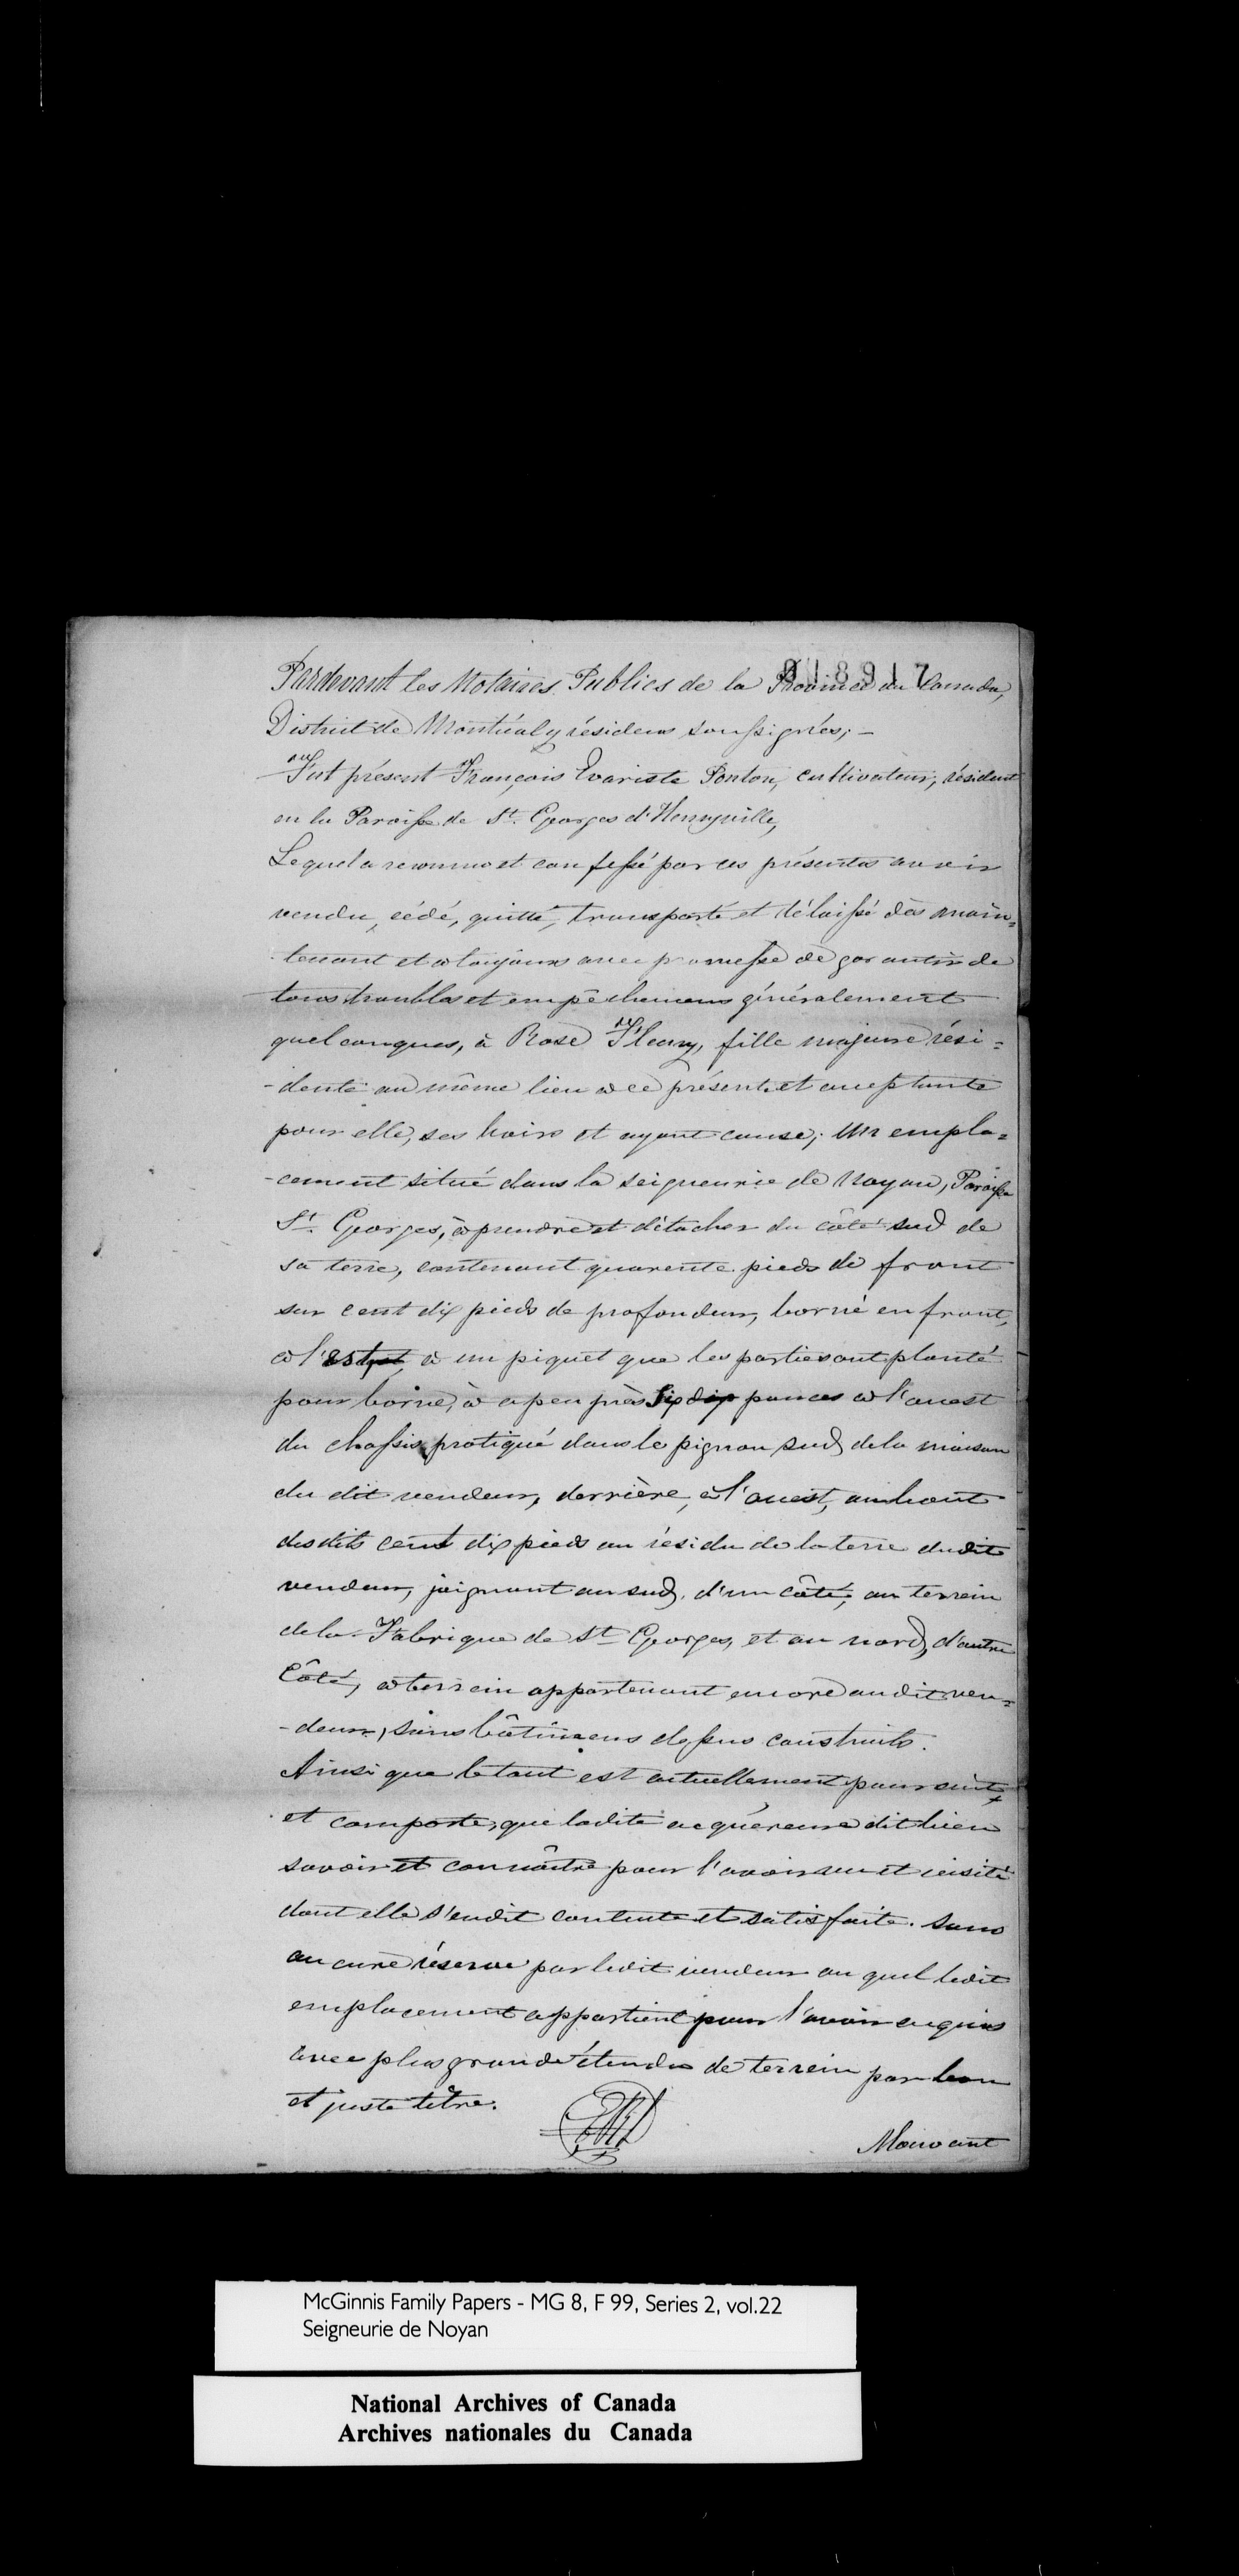 018917
Pardevant les Notaires Publics de la Province du Canada,
District de Montréal y résidens soussignés; —
Fut présent François Evariste Ponton, cultivateur, résidant
en la Paroisse de St. Georges d'Henryville,
Lequel a reconnu et confessé par ces présentes avoir
vendu, cédé, quitté, transporté et délaissé dès main=
tenant et à toujours avec promesse de garantir de
tous troubles et empêchemens généralement
quelconques, à Rose Fleury, fille majeure rési=
-dente au même lieu à ce présente et acceptante
pour elle, ses hoirs et ayant cause; Un empla=
-cement situé dans la seigneurie de Noyan, Paroisse
St. Georges, à prendre et détacher du côté sud de
sa terre, contenant quarente pieds de front
sur cent dix pieds de profondeur, borné en front,
à l'est, à un piquet que les parties ont planté
pour borne, à apeu près six pouces à l'ouest
du chassis pratiqué dans le pignon sud de la maison
du dit vendeur, derrière, à l'ouest, au bout
des dits cent dix pieds au résidu de la terre dudit
vendeur, joignant au sud, d'un côté, au terrein
de la Fabrique de St Georges, et au nord, d'autre
Côté, à terrein appartenant encore au dit ven=
-deur, sans bâtimens dessus construits.
Ainsi que le tout est actuellement poursuit
et comporte, que ladite acquéreure dit bien
savoir et connaître pour l'avoir vu et visité
dont elle s'endit contente et satisfaite. sans
aucune réserve par ledit vendeur au quel ledit
emplacement appartient pour l'avoir acquis
avec plus grande étendue de terrein par bon
et juste titre.
Mouvant
McGinnis Family Papers - MG 8, F 99, Series 2, vol.22
Seigneurie de Noyan
National Archives of Canada
Archives nationales du Canada